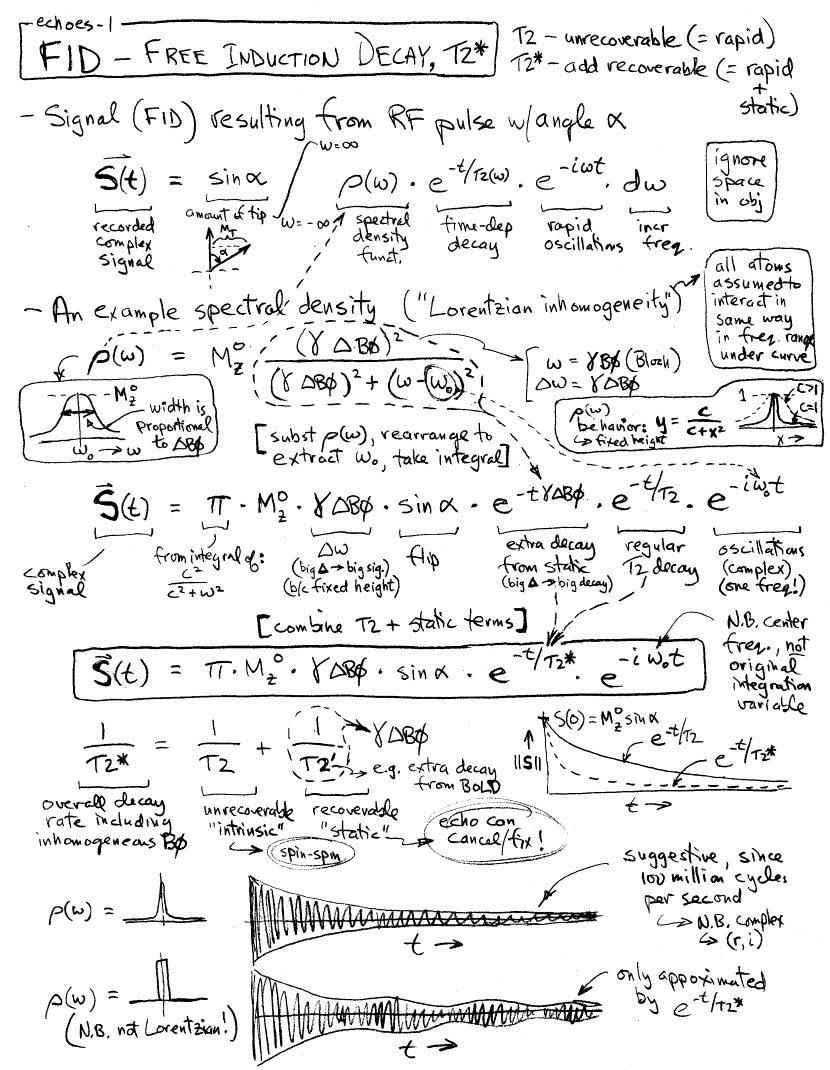 echoes-1
FID – FREE INDUCTION DECAY, T2*
T2 – unrecoverable (= rapid)
T2* – add recoverable (= rapid
+
static)
– Signal (FID) resulting from RF pulse w/angle α
ω=∞
ω=-∞
S⃗(t) = sin α ρ(ω) · e^-t/T2(ω) · e^-iωt · dω
recorded
complex
signal
amount of tip
M_T
α
spectral
density
funct.
time-dep
decay
rapid
oscillations
incr
freq.
ignore
space
in obj
– An example spectral density ("Lorentzian inhomogeneity")
all atoms
assumed to
interact in
same way
in freq. range
under curve
ρ(ω) = M_z^0 (γ ΔBØ)² / ((γ ΔBØ)² + (ω – ω₀)²)
ω = γBØ (Bloch)
Δω = γΔBØ
M_z^0
width is
proportional
to ΔBØ
ω₀ → ω
ρ(ω)
behavior: y = c/(c+x²)
↳ fixed height
1
C>1
C=1
x →
[subst ρ(ω), rearrange to
extract ω₀, take integral]
S⃗(t) = π · M_z^0 · γΔBØ · sin α · e^-tγΔBØ · e^-t/T2 · e^-iω₀t
complex
signal
from integral of:
c²/(c²+ω²)
Δω
(big Δ → big sig.)
(b/c fixed height)
flip
extra decay
from static
(big Δ → big decay)
regular
T2 decay
oscillations
(complex)
(one freq!)
[combine T2 + static terms]
N.B. center
freq., not
original
integration
variable
S⃗(t) = π · M_z^0 · γΔBØ · sin α · e^-t/T2* · e^-iω₀t
1/T2* = 1/T2 + 1/T2'
γΔBØ
e.g. extra decay
from BOLD
overall decay
rate including
inhomogeneous BØ
unrecoverable
"intrinsic"
spin-spin
recoverable
"static"
echo can
cancel/fix!
S(0) = M_z^0 sin α
e^-t/T2
e^-t/T2*
||S||
t →
suggestive, since
100 million cycles
per second
↳ N.B. complex
↳ (r, i)
ρ(ω) =
t →
ρ(ω) =
(N.B. not Lorentzian!)
t →
only appoximated
by e^-t/T2*